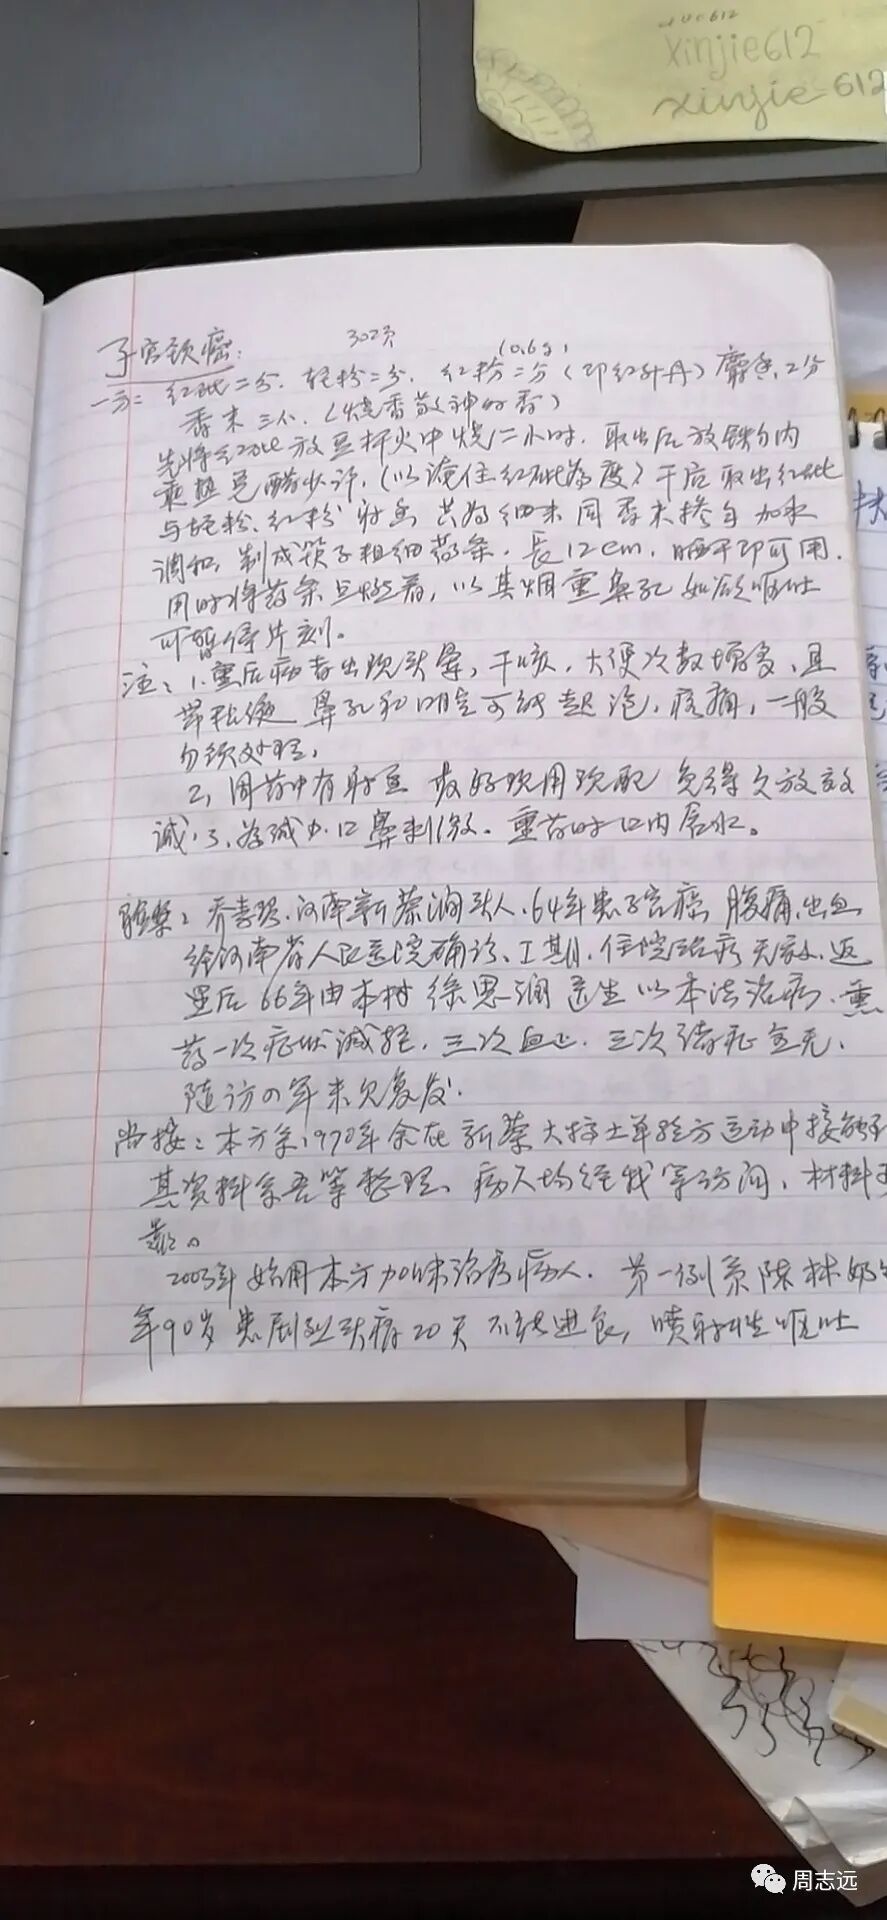 xinjie612
xinjie-612
302页
子宫颈癌:
(0.6g)
一方: 红砒二分. 轻粉二分. 红粉二分(即红升丹)麝香.2分
香末三个.(烧香敬神的香)
先将红砒放豆秆火中烧二小时. 取出后放铁勺内
乘热兑醋少许,(以淹住红砒为度)干后取出红砒
与轻粉、红粉 射香 共为细末 同香末掺匀 加水
调和, 制成筷子粗细药条. 长12cm, 晒干即可用.
用时将药条点燃着, 以其烟熏鼻孔 如欲呕吐
可暂停片刻。
注: 1.熏后病者出现头晕, 干咳, 大便次数增多, 且
带粘便 鼻孔和口腔可能起泡, 疼痛, 一般
勿须处理,
2, 因药中有射香 最好现用现配 免得久放效
减. 3, 为减少口鼻刺激. 熏药时口内含水。
验案: 乔 河南新蔡涧头人.64年患子宫癌 腹痛.出血
经河南省人民医院确诊. I期. 住院治疗无效. 返
里后 66年由本村徐思润医生以本法治疗. 熏
药一次症状减轻. 三次血止. 三次诸症全无.
随访 年未见复发.
按: 本方系1970年余在新蔡大搞土单验方运动中接触到
其资料系吾等整理. 病人均经我等访问, 材料可
靠。
2003年始用本方加味治疗病人. 第一例系陈林奶
年90岁 患剧烈头痛20天 不能进食, 喷射性呕吐
周志远